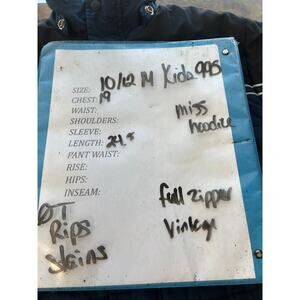 SIZE: 10/12 M Kids 90s
CHEST: 19
WAIST:
SHOULDERS: miss
SLEEVE: hoodie
LENGTH: 24.5
PANT WAIST:
RISE:
HIPS: full zipper
INSEAM: Vintage
Rips
Stains